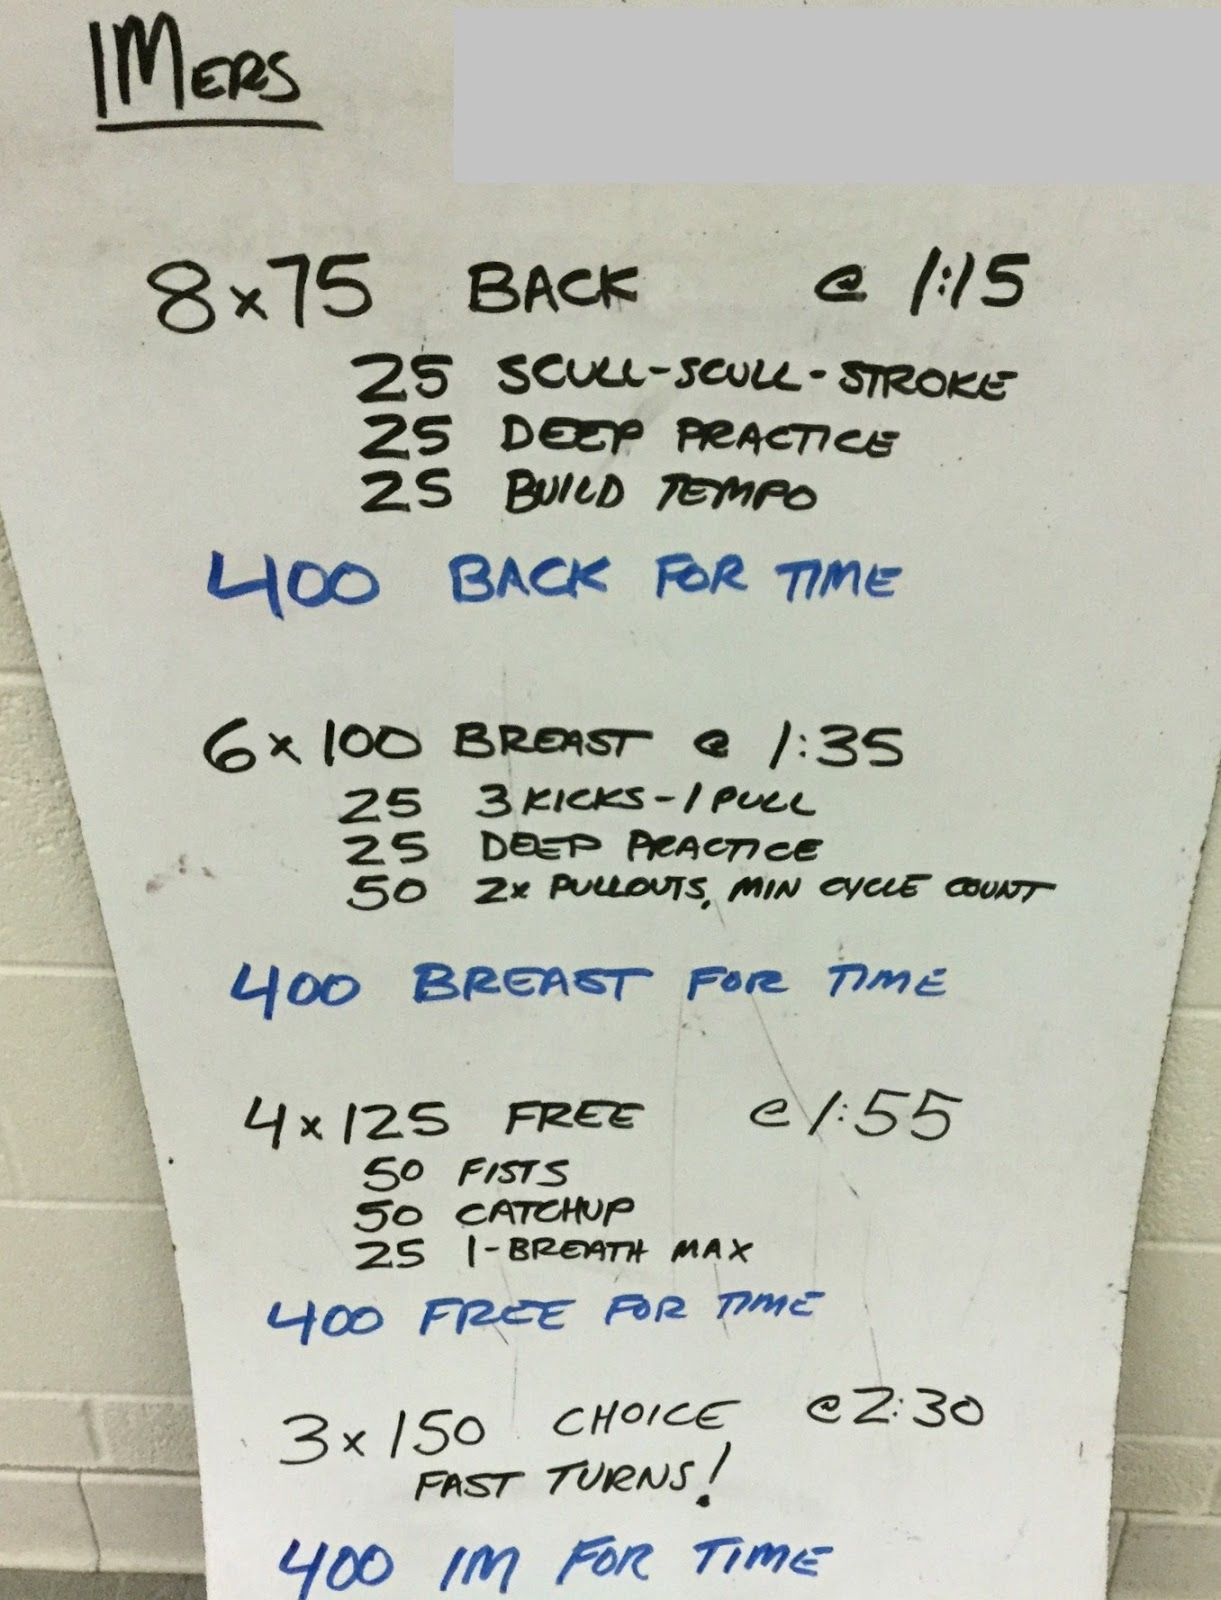 IMERS
8x75 BACK @ 1:15
25 SCULL-SCULL-STROKE
25 DEEP PRACTICE
25 BUILD TEMPO
400 BACK FOR TIME
6x100 BREAST @ 1:35
25 3 KICKS-1 PULL
25 DEEP PRACTICE
50 2x PULLOUTS, MIN CYCLE COUNT
400 BREAST FOR TIME
4x125 FREE @ 1:55
50 FISTS
50 CATCHUP
25 1-BREATH MAX
400 FREE FOR TIME
3x150 CHOICE @ 2:30
FAST TURNS!
400 IM FOR TIME